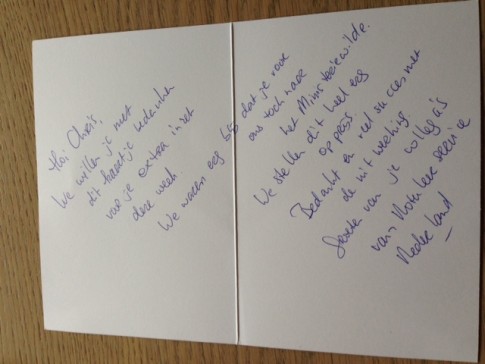 Hoi Chris,
We willen je met
dit kaartje bedanken
voor je extra inzet
deze week
We waren erg blij dat je voor
ons toch naar
het Ministerie wilde.
We stellen dit heel erg
op prijs
Bedankt en veel succes met
de uitwerking!
Groeten van je collega's
van Notuleerservice
Nederland